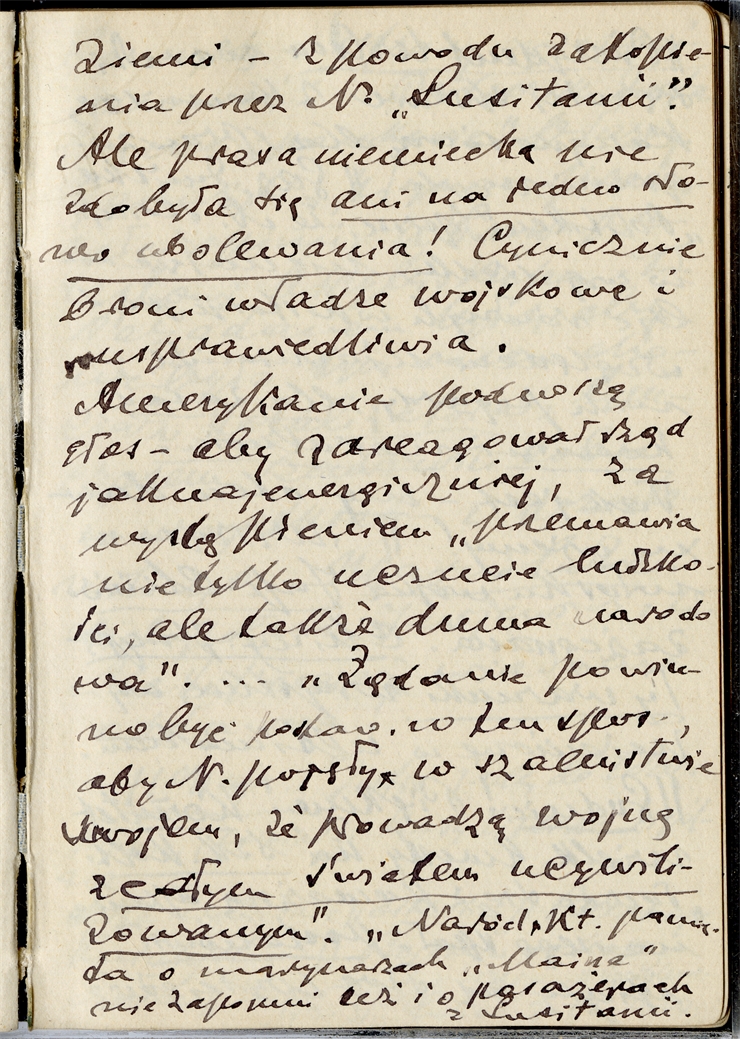 Ziemi – z powodu zatopie-
nia przez N. „Lusitanii”.
Ale prasa niemiecka nie
zdobyła się ani na jedno sło-
wo ubolewania! Cynicznie
broni władze wojskowe i
usprawiedliwia.
Amerykanie podnoszą
głos – aby zareagował rząd
jaknajenergiczniej, za
wystąpieniem „przemawia
nie tylko uczucie ludzko-
ści, ale także duma narodo
wa”. .... „Żądanie powin-
no być postaw. w ten spos.,
aby N. pojęły w szaleństwie
swojem, że prowadzą wojnę
z całym światem ucywili-
zowanym”. „Naród, kt. pamię-
ta o marynarzach „Maina”
nie zapomni też i o pasażerach
z Lusitanii.